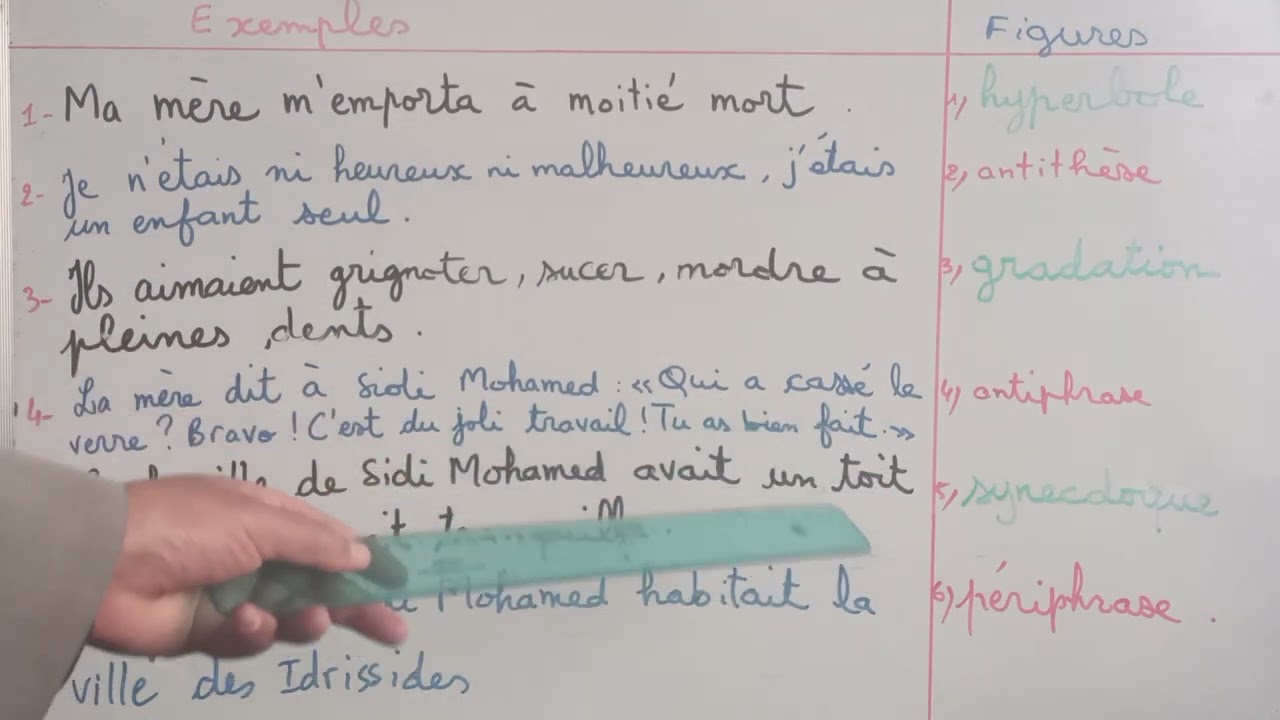 Exemples
Figures
1- Ma mère m'emporta à moitié mort .
1, hyperbole
2- Je n'étais ni heureux ni malheureux, j'étais
un enfant seul .
2, antithèse
3- Ils aimaient grignoter, sucer, mordre à
pleines dents .
3, gradation
4- La mère dit à Sidi Mohamed : «Qui a cassé le
verre ? Bravo ! C'est du joli travail ! Tu as bien fait.»
4, antiphrase
de Sidi Mohamed avait un toit
5, synecdoque
Mohamed habitait la
ville des Idrissides
6, périphrase .